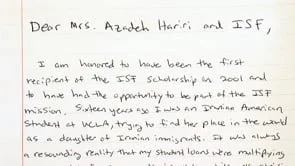 Dear Mrs. Azadeh Hariri and ISF,
I am honored to have been the first
recipient of the ISF Scholarship in 2001 and
to have had the opportunity to be part of the ISF
mission. Sixteen years ago I was an Iranian American
Student at UCLA, trying to find her place in the world
as a daughter of Iranian immigrants. It was always
a resounding reality that my student loans were multiplying